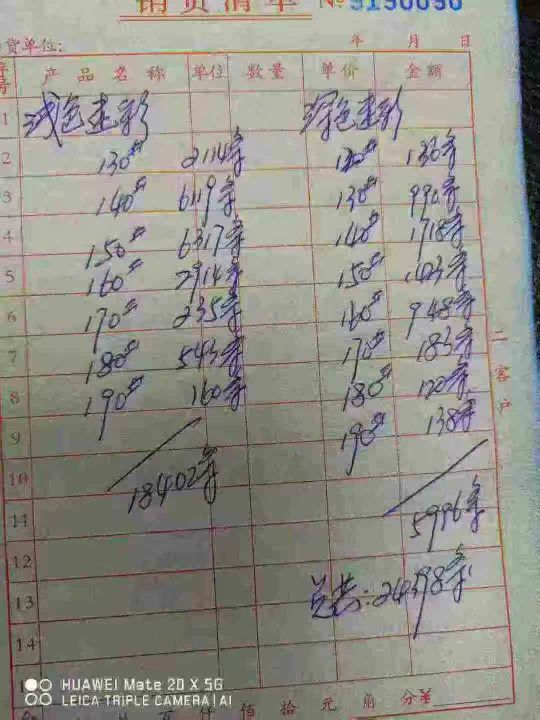 销货清单 № 9190090
货单位: 年 月 日
序号 产品名称 单位 数量 单价 金额
1 浅色迷彩 深色迷彩
2 130# 2114条 120# 136条
3 140# 6119条 130# 990条
4 150# 6317条 140# 1718条
5 160# 2914条 150#
6 170# 235条 160# 948条
7 180# 543条 170# 183条
8 190# 160条 180# 120条
9 190# 138条
10 18402条
11 5996条
12
13 总共:24398条
14
二客户
百 仟 佰 拾 元 角 分 ¥
HUAWEI Mate 20 X 5G
LEICA TRIPLE CAMERA | AI